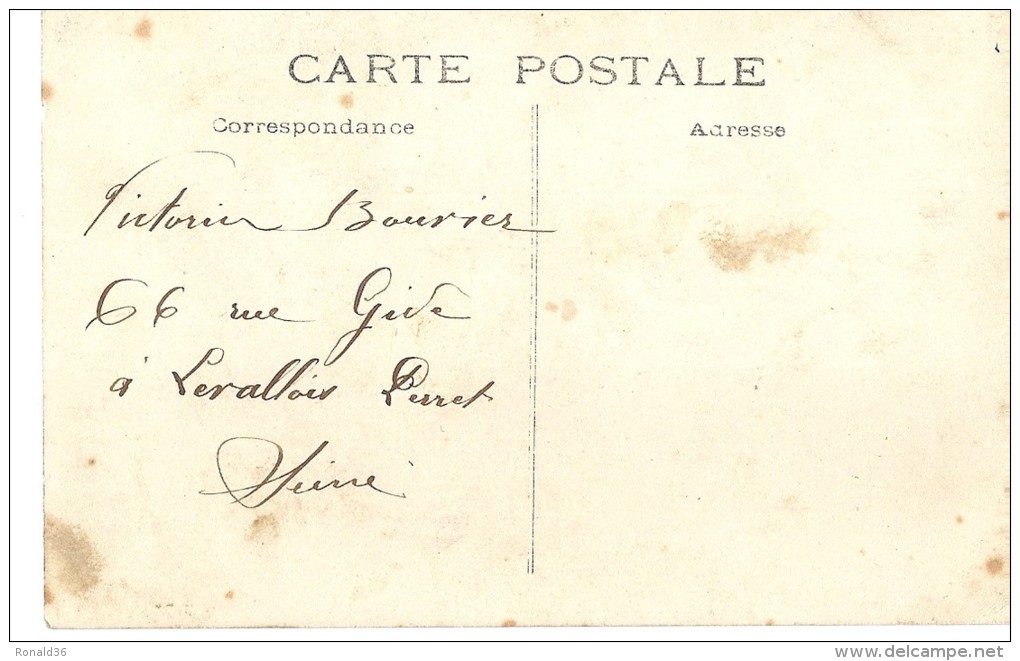 CARTE POSTALE
Correspondance
Adresse
Victorin Bouvier
66 rue Gide
à Levallois Perret
Seine
Ronald36
delcampe.net